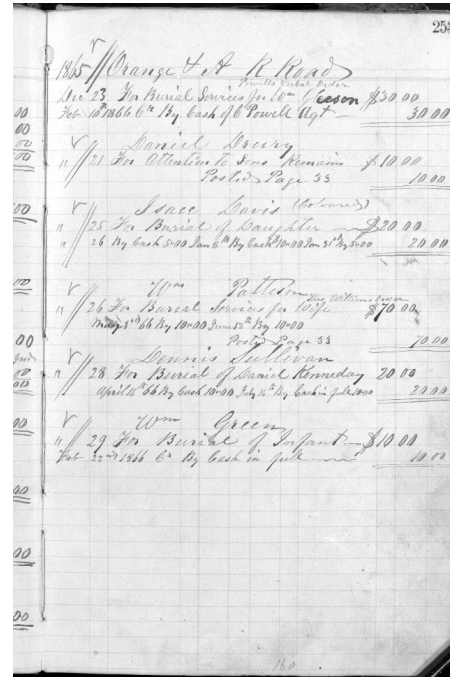 253
1865 // Orange & A R Road
Powells Verbal Order
Dec 23 For Burial Services for Wm Gleeson $30 00
Feb 10th 1866 Cr By Cash of C Powell Agt 30.00
Daniel Drury
" // 21 For Attention to Sons Remains $10.00
Posted Page 33 10.00
Isaac Davis (Coloured)
" // 25 For Burial of Daughter $20.00
" 26 By Cash 5=00 Jan 6th By Cash 10=00 Jan 31st By 5=00 20.00
Wm Patteson
Theo Williams Order
" // 26 For Burial Services for Wife $70.00
May 3rd 66 By 10=00 June 12th By 10=00
Posted Page 33 70.00
Dennis Sullivan
" // 28 For Burial of Daniel Kenneday 20 00
April 14th 66 By Cash 10=00 July 24th By Cash in full 10=00 20.00
Wm Green
" // 29 For Burial of Infant $10.00
Feb 22nd 1866 Cr By Cash in full 10.00
160